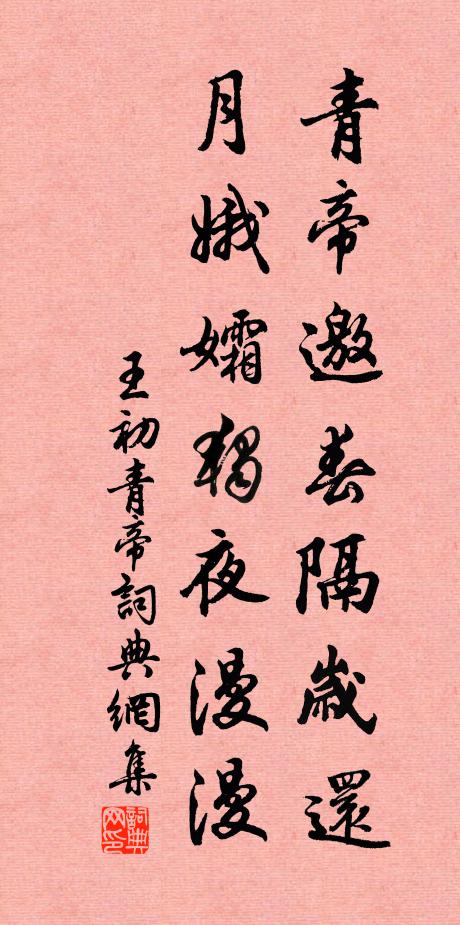 青帝邀春隔歲還
月娥孀獨夜漫漫
王初青帝詞典網集
詞典網印